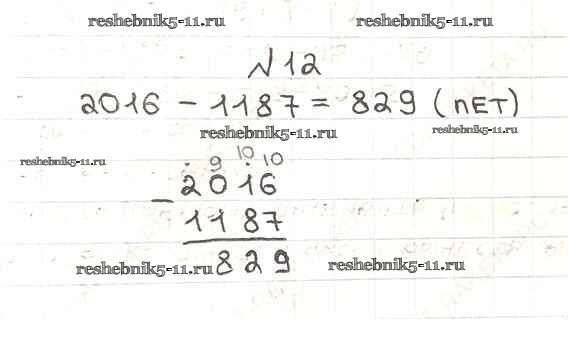 reshebnik5-11.ru reshebnik5-11.ru
№12
2016 - 1187 = 829 (лет)
reshebnik5-11.ru reshebnik5-11.ru
reshebnik5-11.ru
9 10 10
2016
-
1187
829
reshebnik5-11.ru reshebnik5-11.ru